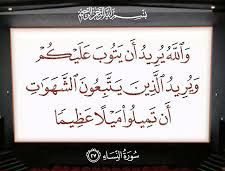 بسم الله الرحمن الرحيم
وَاللَّهُ يُرِيدُ أَن يَتُوبَ عَلَيْكُمْ
وَيُرِيدُ الَّذِينَ يَتَّبِعُونَ الشَّهَوَاتِ
أَن تَمِيلُوا۟ مَيْلًا عَظِيمًا
سُورَةُ النِّسَاءِ ٢٧